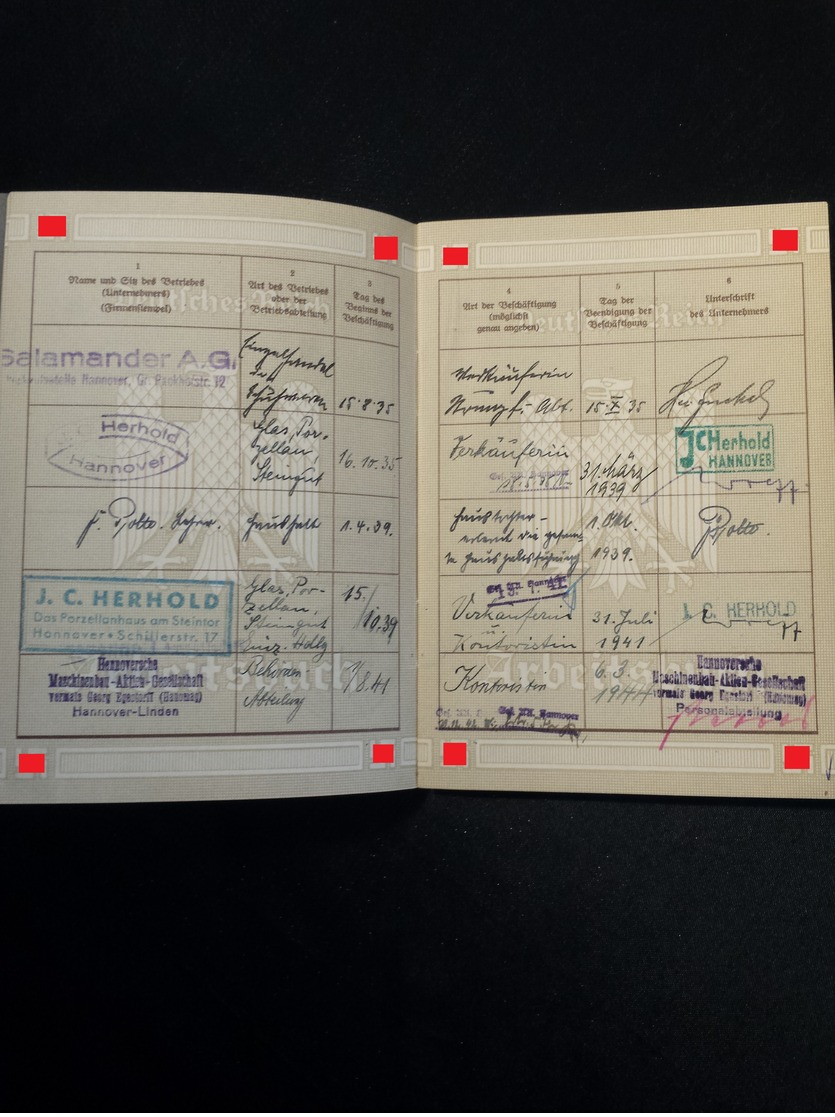 1
Name und Sitz des Betriebes
(Unternehmers)
(Firmenstempel)
2
Art des Betriebes
oder der
Betriebsabteilung
3
Tag des
Beginns der
Beschäftigung
Salamander A.G.
Hannover, Gr. Packhofstr. 12
Einzelhandel
in
Schuhwaren
15.8.35
Herhold
Hannover
Glas, Por-
zellan,
Steingut
16.10.35
Haushalt
1.4.39.
J. C. HERHOLD
Das Porzellanhaus am Steintor
Hannover • Schillerstr. 17
Glas, Por-
zellan,
Steingut
15./10.39
Hannoversche
Maschinenbau-Aktien-Gesellschaft
vormals Georg Egestorff (Hanomag)
Hannover-Linden
Abteilung
1/8.41
4
Art der Beschäftigung
(möglichst
genau angeben)
5
Tag der
Beendigung der
Beschäftigung
6
Unterschrift
des Unternehmers
Verkäuferin
Strumpf-Abt.
15.X.35
Verkäuferin
31. März
1939
JCHerhold
HANNOVER
Haustochter-
erlernt die gesam-
te Haushaltsführung
1. Okt.
1939.
Verkäuferin
u.
Kontoristin
31. Juli
1941
J. C. HERHOLD
Kontoristin
6.3.
1944
Hannoversche
Maschinenbau-Aktien-Gesellschaft
vormals Georg Egestorff (Hanomag)
Personalabteilung
Deutsches Reich
Arbeitsbuch
Deutsches Reich
Arbeitsbuch